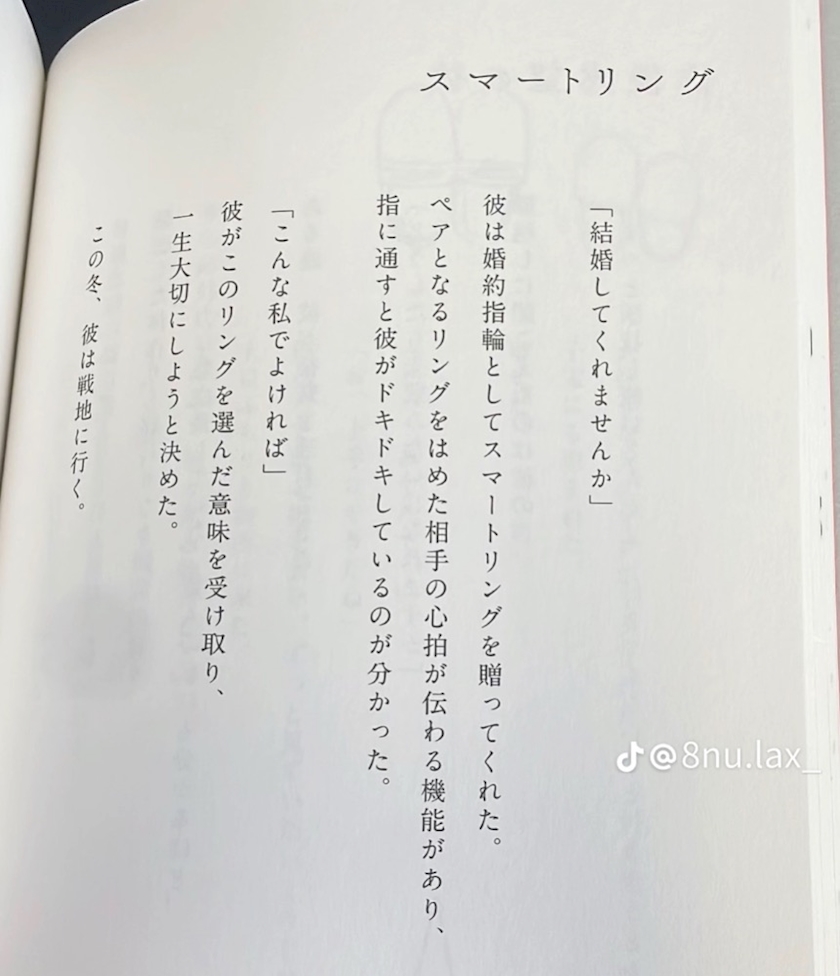 スマートリング
「結婚してくれませんか」
彼は婚約指輪としてスマートリングを贈ってくれた。
ペアとなるリングをはめた相手の心拍が伝わる機能があり、
指に通すと彼がドキドキしているのが分かった。
「こんな私でよければ」
彼がこのリングを選んだ意味を受け取り、
一生大切にしようと決めた。
この冬、彼は戦地に行く。
@8nu.lax_